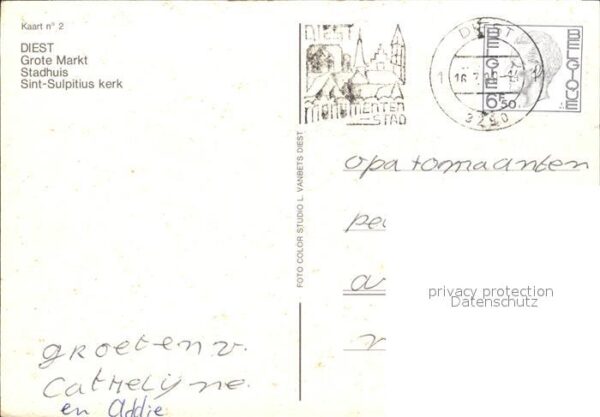 Kaart n° 2
DIEST
Grote Markt
Stadhuis
Sint-Sulpitius kerk
DIEST
MONUMENTEN
STAD
DIEST
16.7
3290
BELGIE
BELGIQUE
6F50
FOTO COLOR STUDIO L. VANBETS DIEST
opatomaanten
pe
a
privacy protection
Datenschutz
groeten v.
Cathelijne
en Addie